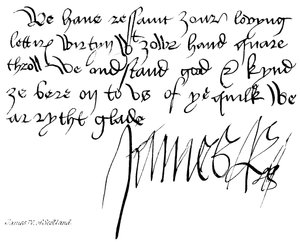 We haue ressauit zour lovyng
lettir Wirtyn Wt zour hand quare
throu We ondstand gud & kynd
ze bere on to Vs of ye quilk We
ar rytht glade
James R
James IV. of Scotland